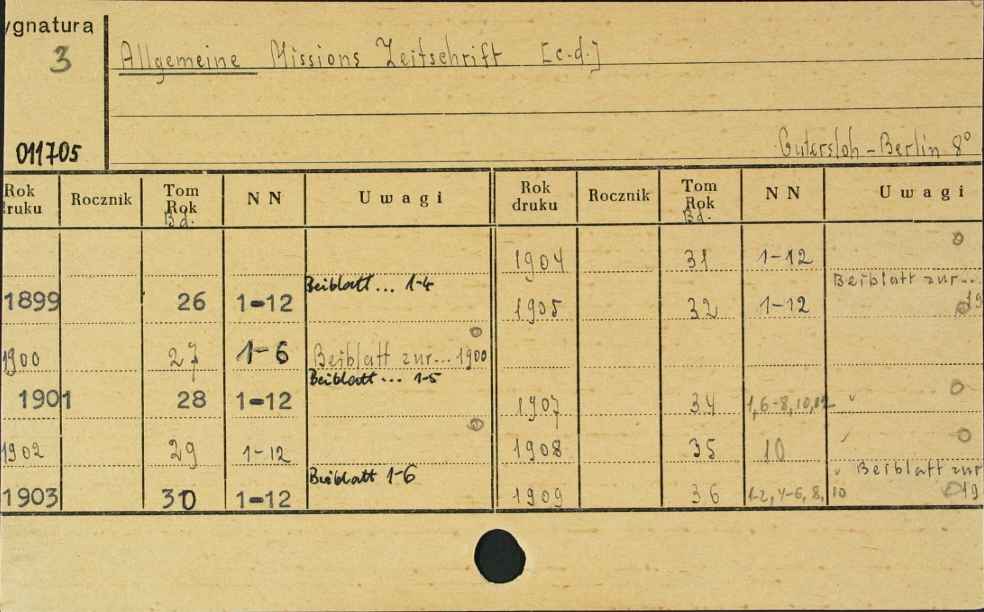 ygnatura
3
Allgemeine Missions Zeitschrift [c.d.]
011705
Gutersloh-Berlin 8°
Rok druku Rocznik Tom Rok Bd. NN Uwagi Rok druku Rocznik Tom Rok Bd. NN Uwagi
1904 31 1-12
Beiblatt... 1-4 Beiblatt zur...
1899 26 1-12 1905 32 1-12 19
1900 27 1-6 Beiblatt zur... 1900
Beiblatt... 1-5
1901 28 1-12 1907 34 1,6-8,10,12 "
1902 29 1-12 1908 35 10 "
Beiblatt 1-6 " Beiblatt zur
1903 30 1-12 1909 36 1-2,4-6,8,10 19